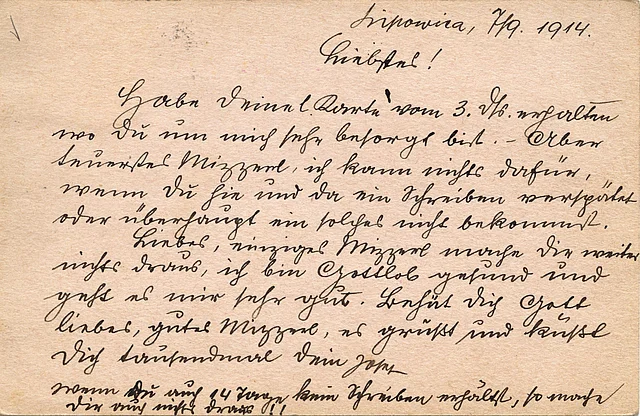 Lipowica, 7/9. 1914.
Liebstes!
Habe Deine l. Karte vom 3. ds. erhalten
wo Du um mich sehr besorgt bist. – Aber
teuerstes Mizzerl, ich kann nichts dafür,
wenn Du hie und da ein Schreiben verspätet
oder überhaupt ein solches nicht bekommst.
Liebes, einziges Mizzerl mache Dir weiter
nichts draus, ich bin Gottlob gesund und
geht es mir sehr gut. Behüt Dich Gott
liebes, gutes Mizzerl, es grüßt und küßt
Dich tausendmal Dein Josef
wenn Du auch 14 Tage kein Schreiben erhältst, so mache
Dir auch nichts draus!!